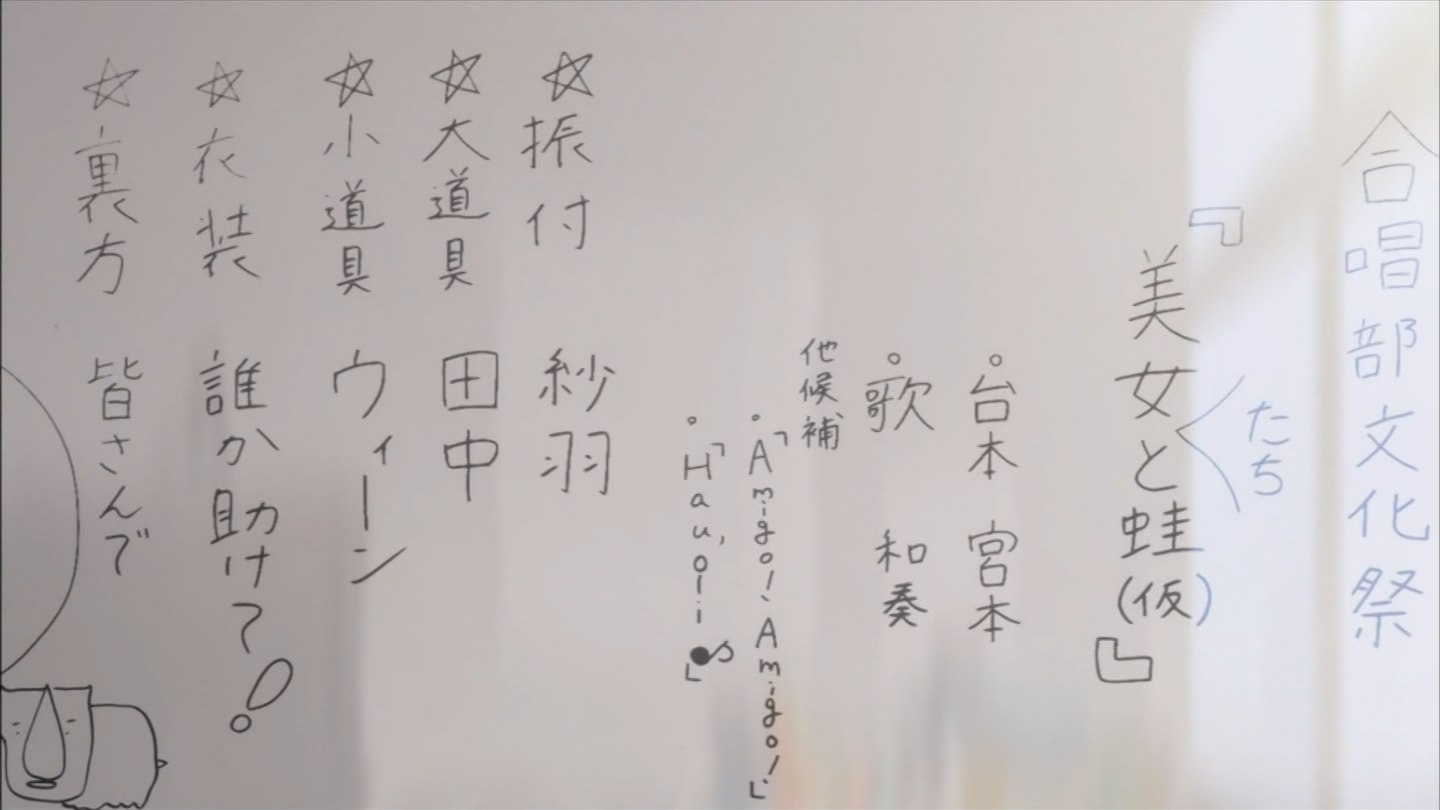 合唱部文化祭
たち
『美女と蛙(仮)』
。台本 宮本
。歌 和奏
他候補
。「Amigo! Amigo!」
。「Hau,oli♪」
☆振付 紗羽
☆大道具 田中
☆小道具 ウィーン
☆衣装 誰か助けて!
☆裏方 皆さんで